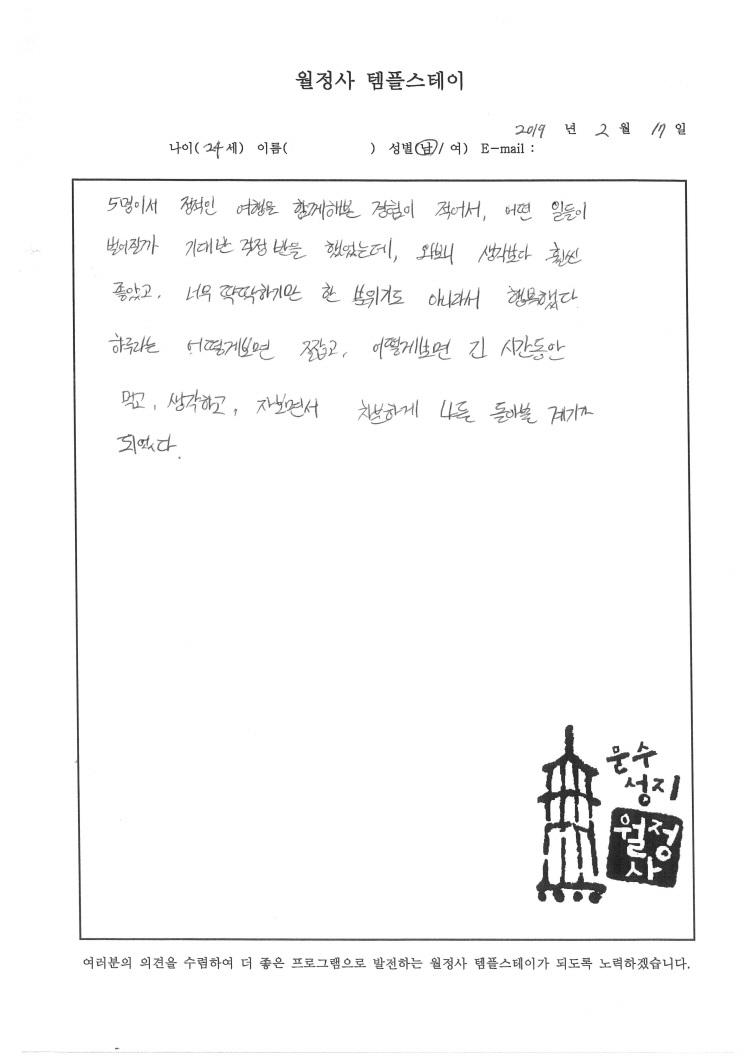 월정사 템플스테이
2019 년 2 월 17 일
나이( 24 세) 이름( ) 성별(남/ 여) E-mail :
5명이서 정적인 여행을 함께해본 경험이 적어서, 어떤 일들이
벌어질까 기대반 걱정 반을 했었는데, 와보니 생각보다 훨씬
좋았고, 너무 딱딱하기만 한 분위기도 아니라서 행복했다
하루라는 어떻게보면 짧고, 어떻게보면 긴 시간동안
먹고, 생각하고, 자보면서 차분하게 나를 돌아볼 계기가
되었다.
문수
성지
월정
사
여러분의 의견을 수렴하여 더 좋은 프로그램으로 발전하는 월정사 템플스테이가 되도록 노력하겠습니다.